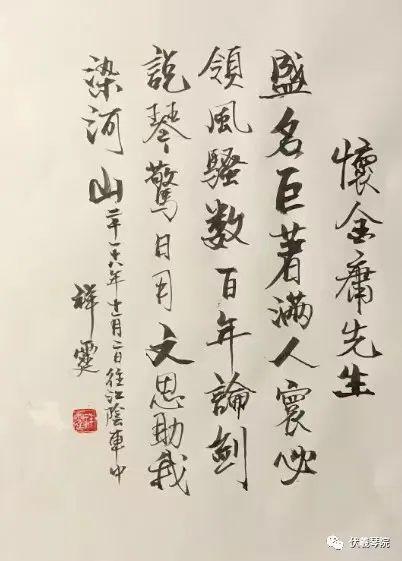 懷金庸先生
盛名巨著滿人寰必
領風騷数百年論劍
說琴驚日月文恩助我
染河山
二千一十八年十一月二日往江陰車中
祥霆
伏羲琴院